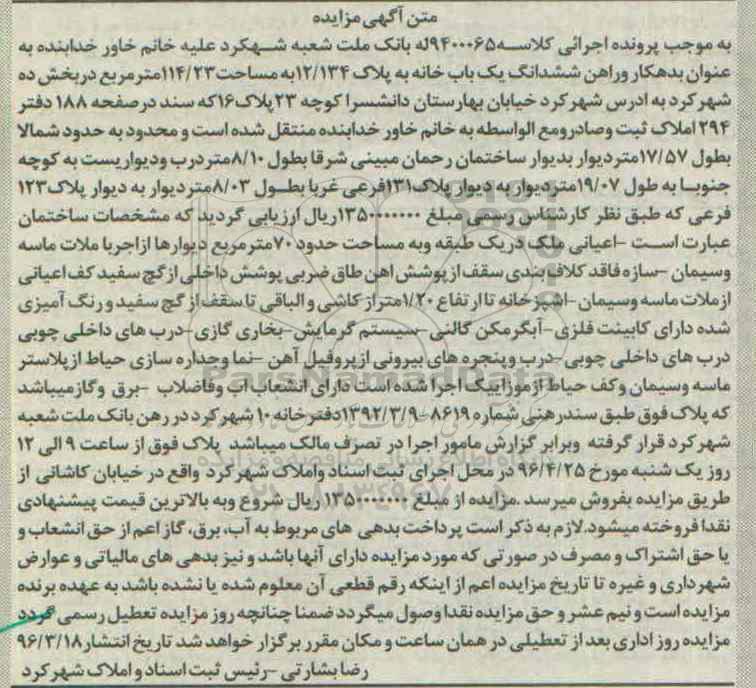 متن آگهی مزایده
به موجب پرونده اجرائی کلاسه ۹۴۰۰۰۶۵له بانک ملت شعبه شهرکرد علیه خانم خاور خدابنده به
عنوان بدهکار وراهن ششدانگ یک باب خانه به پلاک ۱۲/۱۳۴به مساحت۱۱۴/۲۳مترمربع دربخش ده
شهر کرد به ادرس شهر کرد خیابان بهارستان دانشسرا کوچه ۲۳پلاک۱۶که سند درصفحه ۱۸۸ دفتر
۲۹۴ املاک ثبت وصادرومع الواسطه به خانم خاور خدابنده منتقل شده است و محدود به حدود شمالا
بطول ۱۷/۵۷متردیوار بدیوار ساختمان رحمان مبینی شرقا بطول ۸/۱۰متردرب ودیواریست به کوچه
جنوبا به طول ۱۹/۰۷متردیوار به دیوار پلاک۱۳۱فرعی غربا بطول ۸/۰۳متردیوار به دیوار پلاک۱۲۳
فرعی که طبق نظر کارشناس رسمی مبلغ ۱۳۵۰۰۰۰۰۰۰ریال ارزیابی گردید که مشخصات ساختمان
عبارت است -اعیانی ملک دریک طبقه وبه مساحت حدود ۷۰مترمربع دیوارها ازاجربا ملات ماسه
وسیمان -سازه فاقد کلاف بندی سقف از پوشش اهن طاق ضربی پوشش داخلی ازگچ سفید کف اعیانی
ازملات ماسه وسیمان -اشپزخانه تا ارتفاع ۱/۲۰متراز کاشی و الباقی تا سقف از گچ سفید و رنگ آمیزی
شده دارای کابینت فلزی-آبگرمکن گالنی-سیستم گرمایش-بخاری گازی-درب های داخلی چوبی
درب های داخلی چوبی-درب وپنجره های بیرونی ازپروفیل آهن -نما وجداره سازی حیاط ازپلاستر
ماسه وسیمان وکف حیاط ازموزاییک اجرا شده است دارای انشعاب اب وفاضلاب -برق وگازمیباشد
که پلاک فوق طبق سندرهنی شماره ۸۶۱۹-۱۳۹۲/۳/۹دفترخانه ۱۰ شهرکرد در رهن بانک ملت شعبه
شهر کرد قرار گرفته وبرابر گزارش مامور اجرا در تصرف مالک میباشد پلاک فوق از ساعت ۹ الی ۱۲
روز یک شنبه مورخ ۹۶/۴/۲۵ در محل اجرای ثبت اسناد واملاک شهر کرد واقع در خیابان کاشانی از
طریق مزایده بفروش میرسد .مزایده از مبلغ ۱۳۵۰۰۰۰۰۰۰ ریال شروع وبه بالاترین قیمت پیشنهادی
نقدا فروخته میشود.لازم به ذکر است پرداخت بدهی های مربوط به آب، برق، گاز اعم از حق انشعاب و
یا حق اشتراک و مصرف در صورتی که مورد مزایده دارای آنها باشد و نیز بدهی های مالیاتی و عوارض
شهرداری و غیره تا تاریخ مزایده اعم از اینکه رقم قطعی آن معلوم شده یا نشده باشد به عهده برنده
مزایده است و نیم عشر و حق مزایده نقدا وصول میگردد ضمنا چنانچه روز مزایده تعطیل رسمی گردد
مزایده روز اداری بعد از تعطیلی در همان ساعت و مکان مقرر برگزار خواهد شد تاریخ انتشار ۹۶/۳/۱۸
رضا بشارتی -رئیس ثبت اسناد و املاک شهر کرد
ParsNamadData